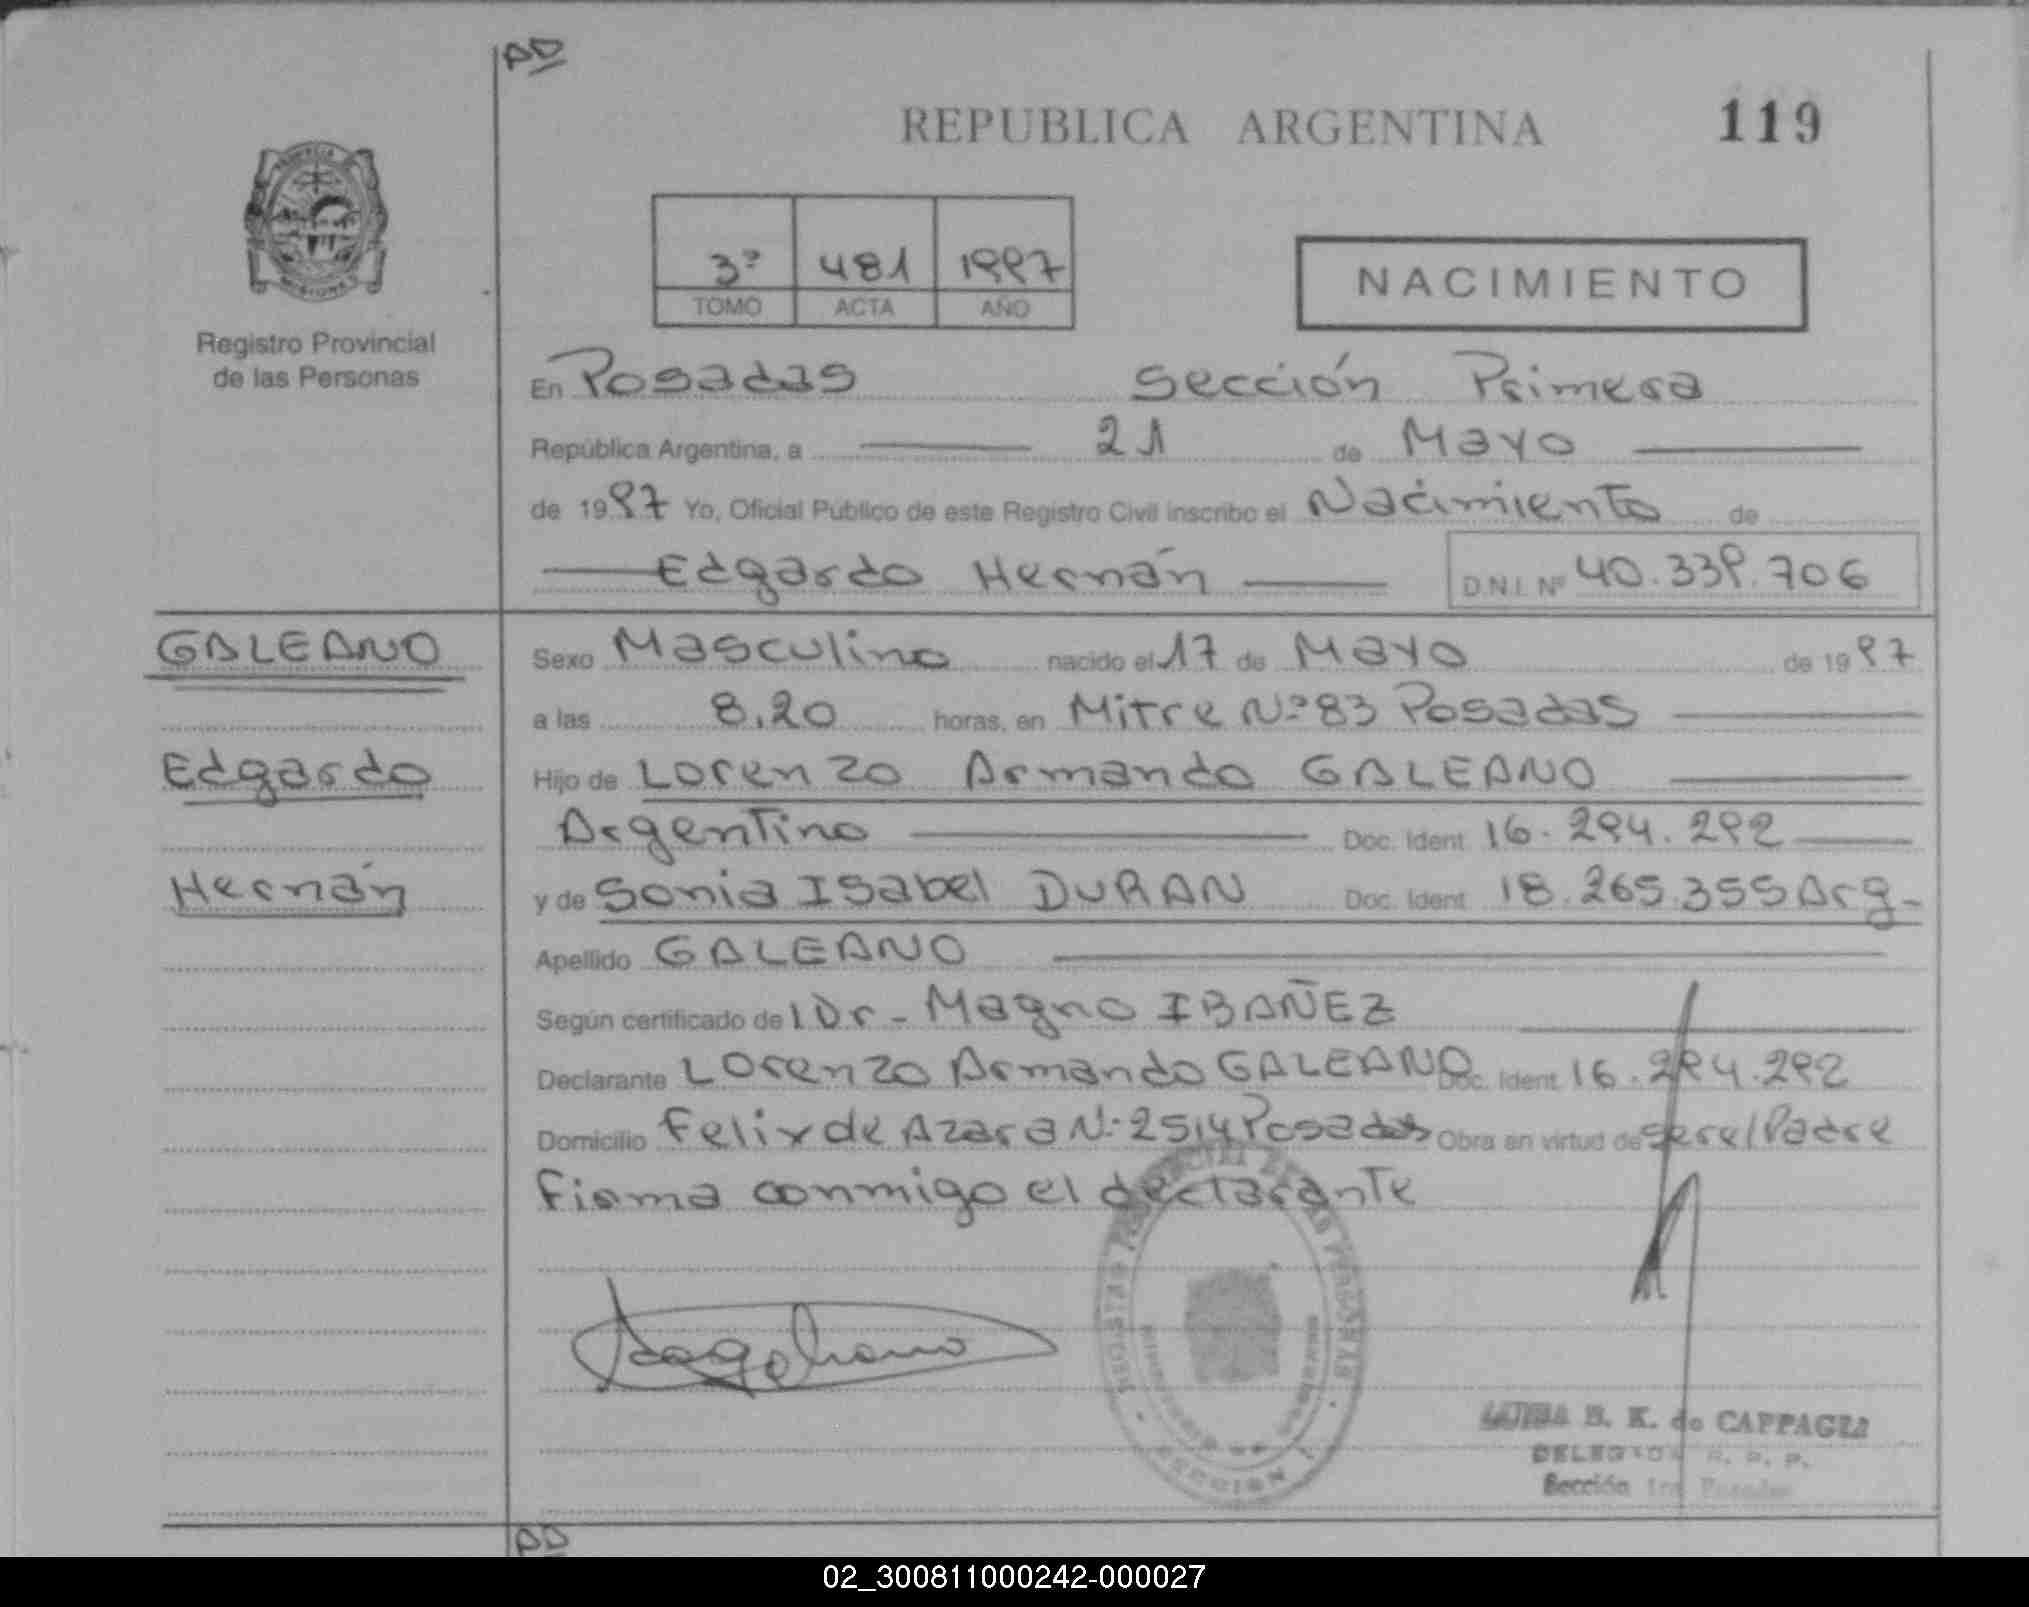 AD
REPUBLICA ARGENTINA 119
PROVINCIA
MISIONES
Registro Provincial
de las Personas
3º 481 1997
TOMO ACTA AÑO
NACIMIENTO
En Posadas Sección Primera
República Argentina, a 21 de Mayo
de 1997 Yo, Oficial Público de este Registro Civil inscribo el Nacimiento de
Edgardo Hernán D.N.I. Nº 40.339.706
GALEANO
Edgardo
Hernán
Sexo Masculino nacido el 17 de Mayo de 1997
a las 8,20 horas, en Mitre Nº 83 Posadas
Hijo de Lorenzo Armando GALEANO
Argentino Doc. Ident 16.294.292
y de Sonia Isabel DURAN Doc. Ident 18.265.355 Arg-
Apellido GALEANO
Según certificado de l Dr- Magno IBAÑEZ
Declarante Lorenzo Armando GALEANO Doc. Ident 16.294.292
Domicilio Felix de Azara N: 2514 Posadas Obra en virtud de ser el Padre
Firma conmigo el declarante
B. K. de CAPPAGLI
DELEGADA R. P. P.
Sección 1ra Posadas
SECCION 1
AD
02_300811000242-000027